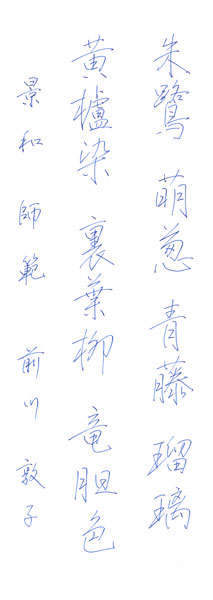 朱鷺 萌葱 青藤 瑠璃
黄櫨染 裏葉柳 竜胆色
景和 師範 前川 敦子